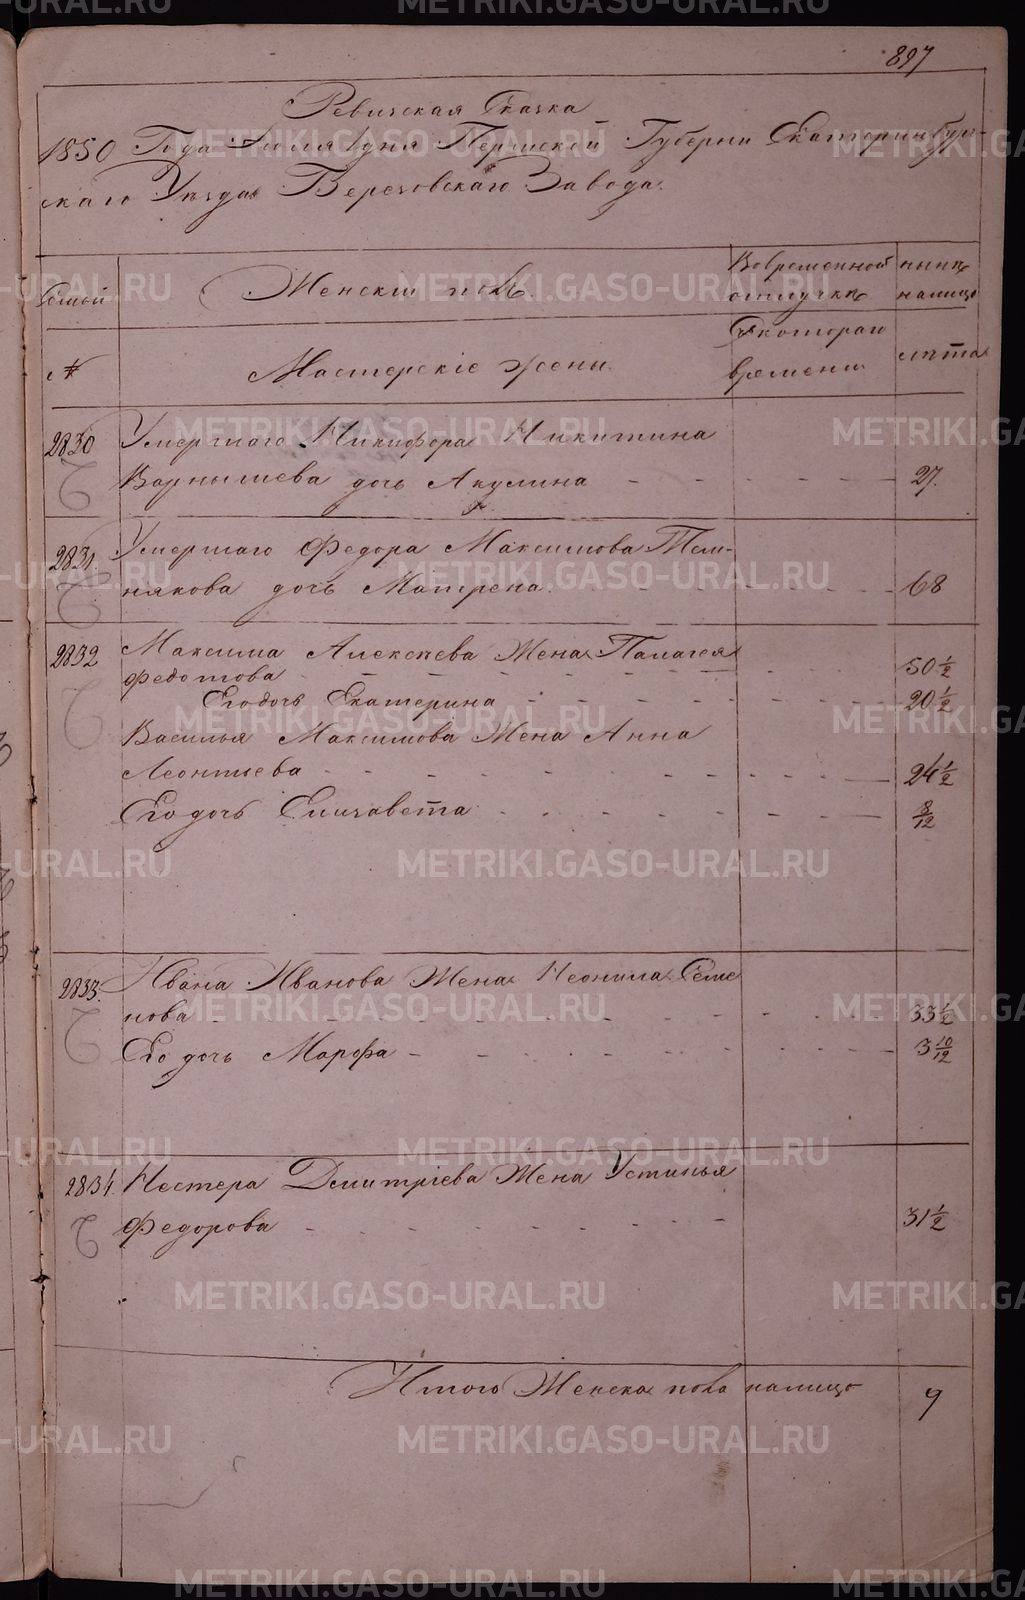 897
Ревизская Сказка
1850 Года Июля дня Пермской Губерни Екатеринбург-
скаго Уезда Березовскаго Завода.
Семьи Женский полъ. Вовременной ныне
отлучке налицо
№ Мастерскiе жены. Скотораго лета
времени
2830 Умершаго Никифора Никитина
Варнышева дочь Акулина 27.
2831. Умершаго Федора Максимова Тем-
някова дочь Матрена 68
2832 Максима Алексеева Жена Палагея
Федотова 50 1/2
Егодочь Екатерина 20 1/2
Василья Максимова Жена Анна
Леонтьева 24 1/2
Его дочь Елизавета 8/12
2833. Ивана Иванова Жена Неонила Семе
нова 33 1/2
Его дочь Марфа 3 10/12
2834. Нестера Дмитрiева Жена Устинья
Федорова 31 1/2
Итого Женска пола налицо 9
METRIKI.GASO-URAL.RU